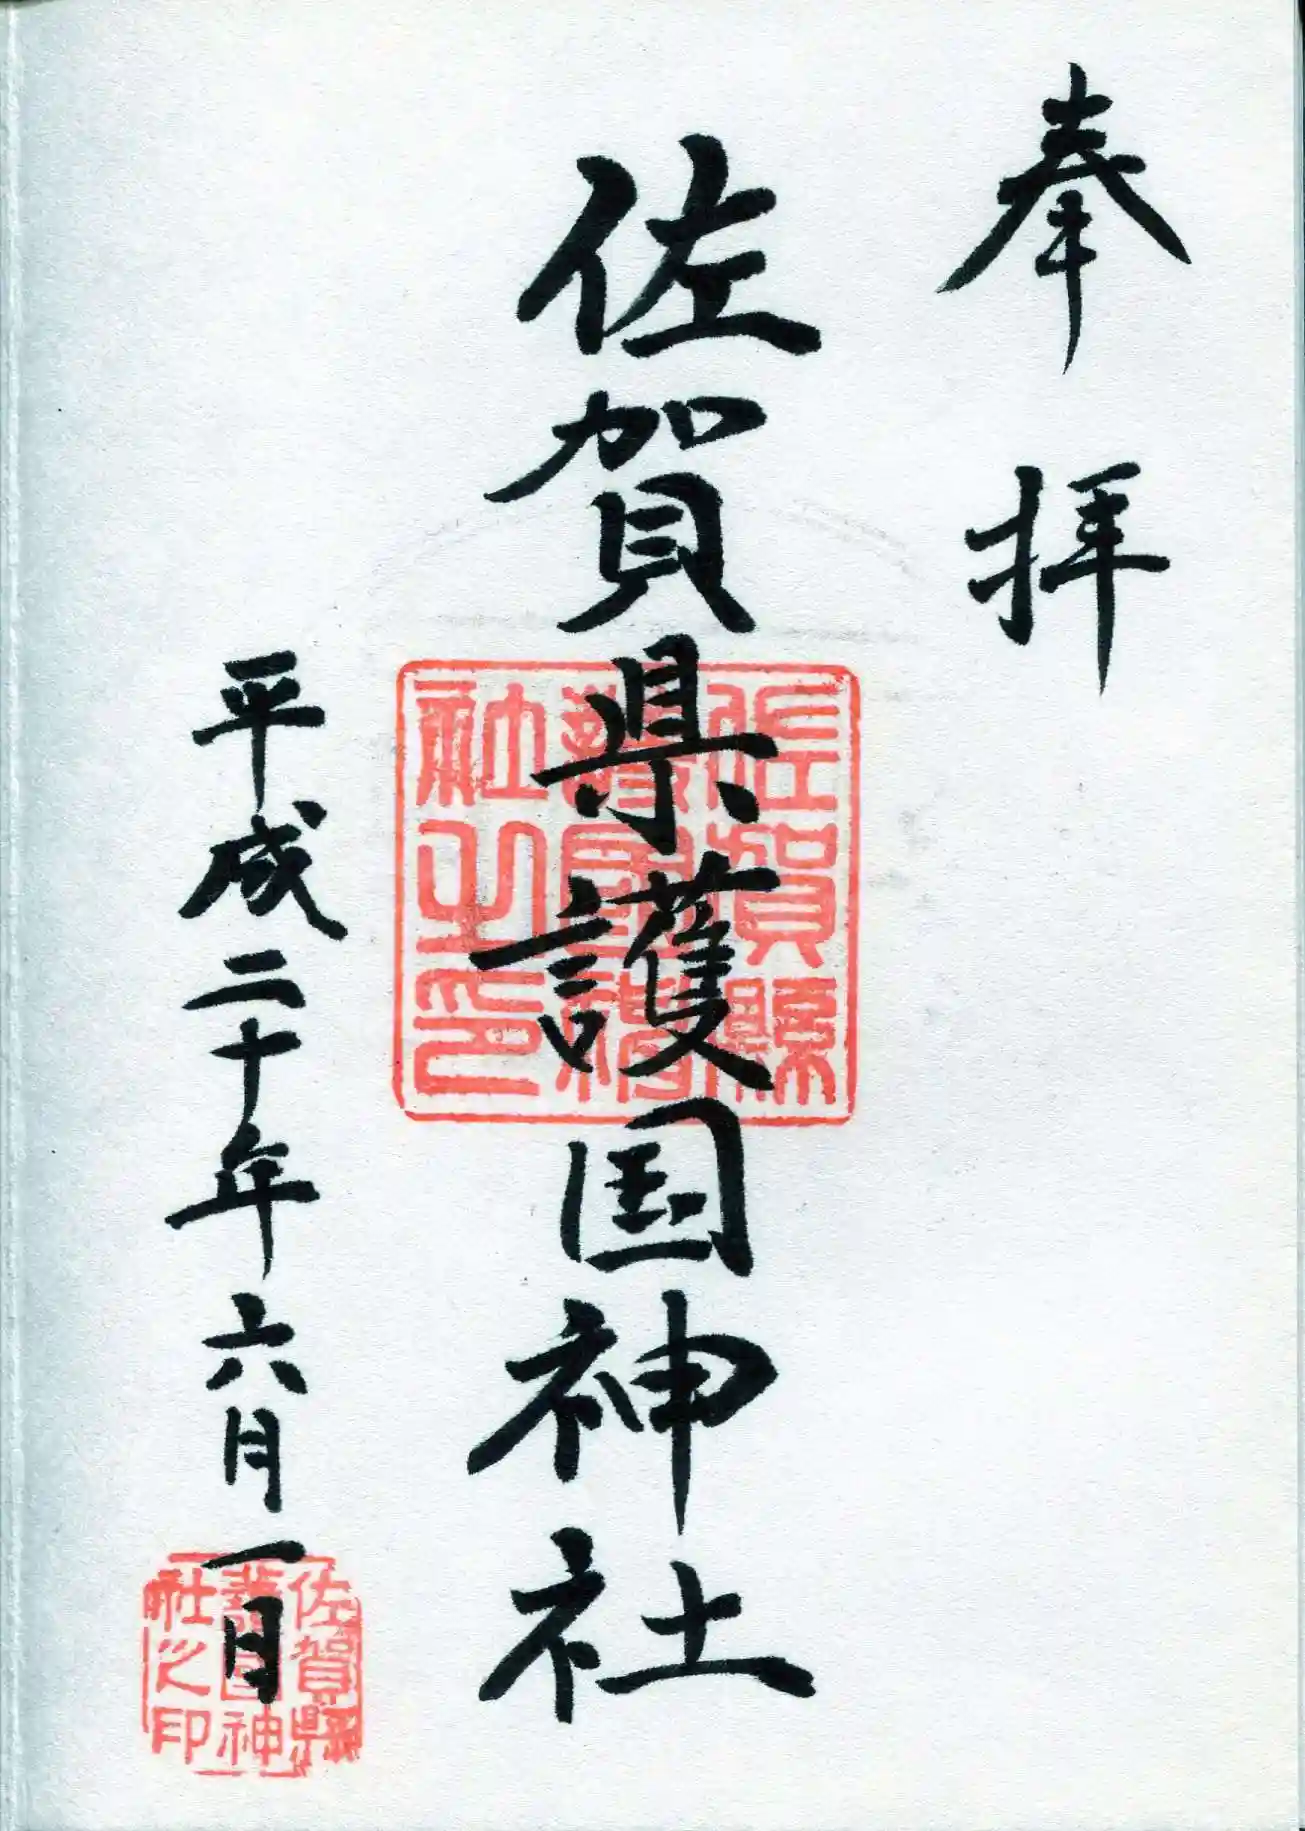 奉拝
佐賀県護国神社
平成二十年六月一日
佐賀縣
護國神
社之印
佐賀縣
護國神
社之印